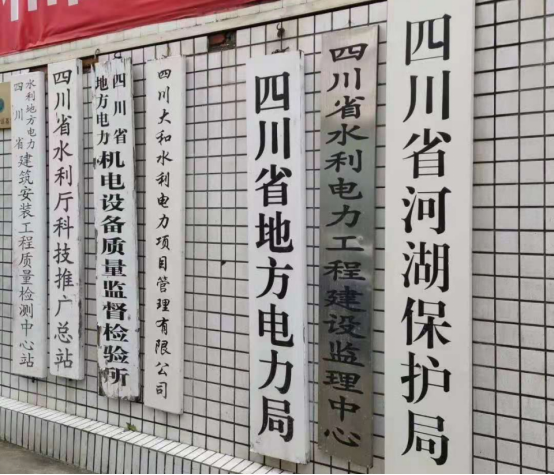 四川省水利地方电力建筑安装工程质量检测中心站
四川省水利厅科技推广总站
四川省地方电力机电设备质量监督检验所
四川大和水利电力项目管理有限公司
四川省地方电力局
四川省水利电力工程建设监理中心
四川省河湖保护局